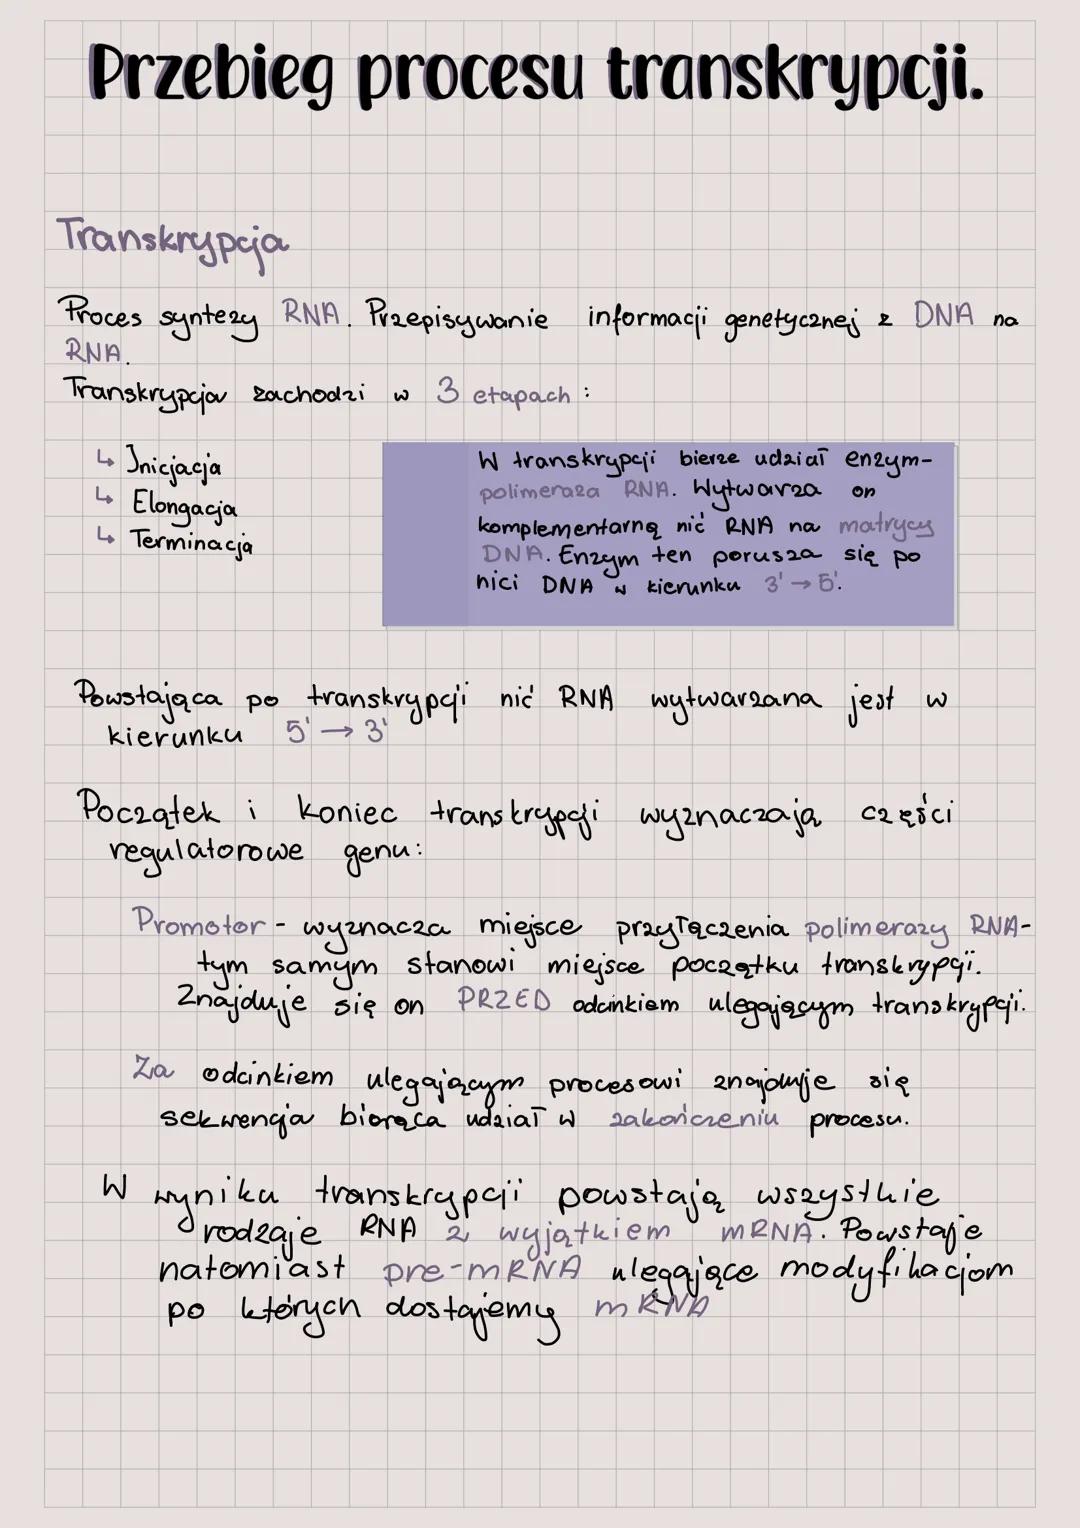 Przebieg procesu transkrypcji.
Transkrypcja
Proces syntezy RNA. Przepisywanie informacji genetycznej z DNA na
RNA.
Transkrypcja zachodzi w 3 etapach :
↳ Inicjacja
↳ Elongacja
↳ Terminacja
W transkrypcji bierze udział enzym-
polimeraza RNA. Wytwarza on
komplementarną nić RNA na matrycy
DNA. Enzym ten porusza się po
nici DNA w kierunku 3' → 5'.
Powstająca po transkrypcji nić RNA wytwarzana jest w
kierunku 5' → 3'
Początek i koniec transkrypcji wyznaczają części
regulatorowe genu:
Promotor - wyznacza miejsce przyłączenia polimerazy RNA-
tym samym stanowi miejsce początku transkrypcji.
Znajduje się on PRZED odcinkiem ulegającym transkrypcji.
Za odcinkiem ulegającym procesowi znajduje się
sekwencja biorąca udział w zakończeniu procesu.
W wyniku transkrypcji powstają wszystkie
rodzaje RNA z wyjątkiem mRNA. Powstaje
natomiast pre-mRNA ulegające modyfikacjom
po których dostajemy mRNA